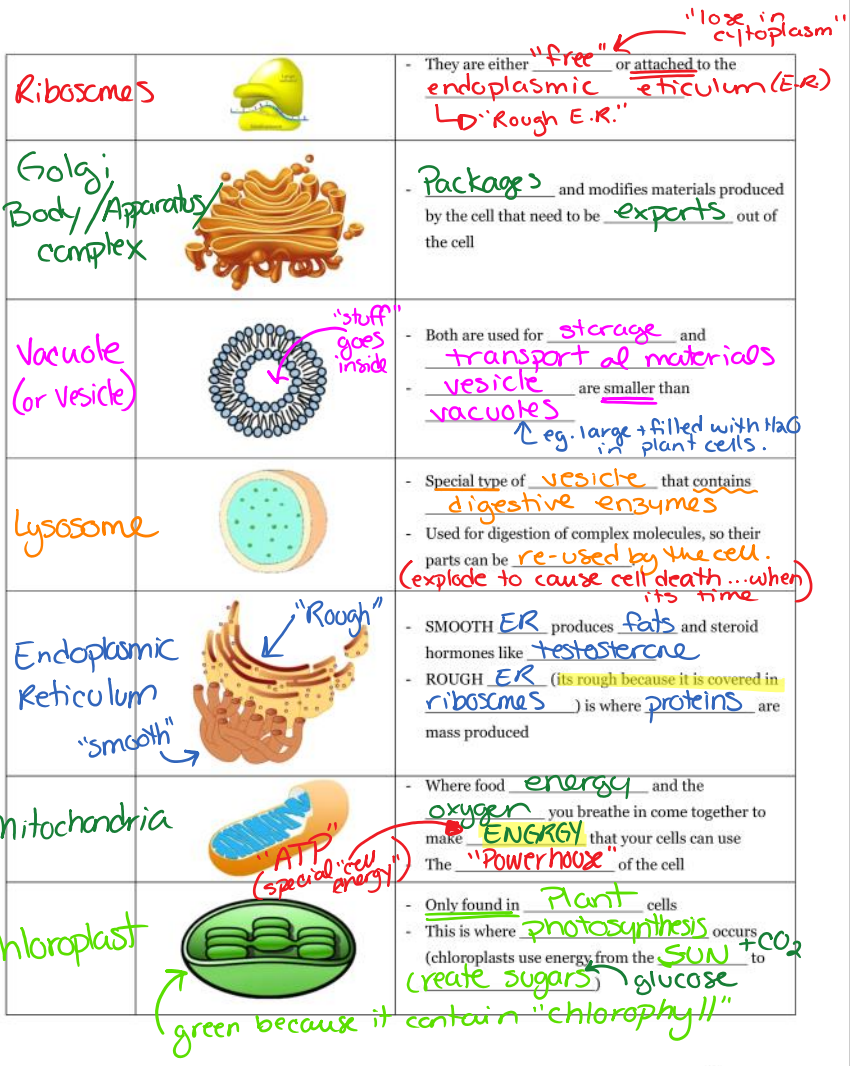 "lose in
cytoplasm"
Ribosomes
- They are either "free" or attached to the
endoplasmic eticulum (E.R.)
"Rough E.R."
Golgi
Body/Apparatus/
complex
- Packages and modifies materials produced
by the cell that need to be exports out of
the cell
Vacuole
(or vesicle)
"stuff"
goes
inside
- Both are used for storage and
transport of materials
- vesicle are smaller than
vacuoles
eg. large + filled with H2O
in plant cells.
Lysosome
- Special type of vesicle that contains
digestive enzymes
- Used for digestion of complex molecules, so their
parts can be re-used by the cell.
(explode to cause cell death...when)
its time
Endoplasmic
Reticulum
"Rough"
"smooth"
- SMOOTH ER produces fats and steroid
hormones like testosterone
- ROUGH ER (its rough because it is covered in
ribosomes ) is where proteins are
mass produced
mitochondria
"ATP"
(special "cell
energy")
- Where food energy and the
oxygen you breathe in come together to
make ENERGY that your cells can use
The "Powerhouse" of the cell
hloroplast
- Only found in Plant cells
- This is where photosynthesis occurs
(chloroplasts use energy from the SUN +CO2 to
create sugars) glucose
green because it contain "chlorophyll"